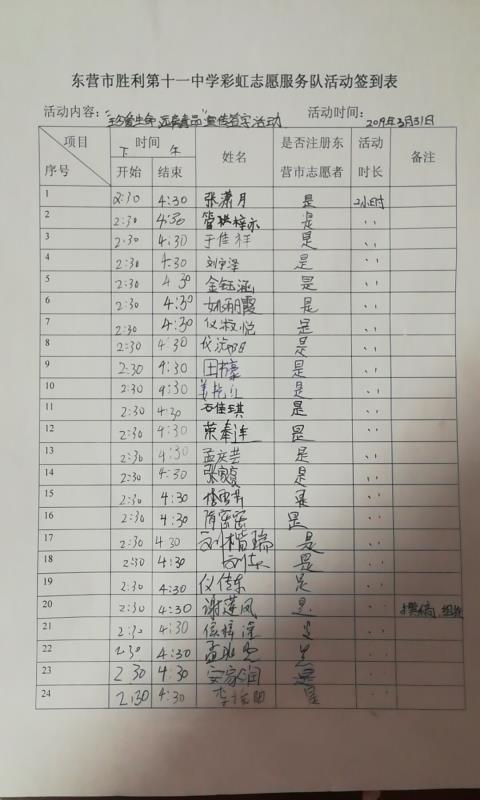 东营市胜利第十一中学彩虹志愿服务队活动签到表
活动内容：“珍爱生命 远离毒品”宣传签字活动 活动时间：2019年3月31日
项目 时间 姓名 是否注册东营市志愿者 活动时长 备注
下 午
序号 开始 结束
1 2:30 4:30 张潇月 是 2小时
2 2:30 4:30 是 ,,
3 2:30 4:30 于佳祥 是 ,,
4 2:30 4:30 是 ,,
5 2:30 4:30 金钰涵 是 ,,
6 2:30 4:30 姚丽霞 是 ,,
7 2:30 4:30 仪淑悦 是 ,,
8 2:30 4:30 是 ,,
9 2:30 4:30 是 ,,
10 2:30 4:30 是 ,,
11 2:30 4:30 石佳琪 是 ,,
12 2:30 4:30 荣奉连 是 ,,
13 2:30 4:30 孟庆芸 是 ,,
14 2:30 4:30 是 ,,
15 2:30 4:30 是
16 2:30 4:30 是
17 2:30 4:30 刘楷瑞 是
18 2:30 4:30 是
19 2:30 4:30 仪传东 是
20 2:30 4:30 谢莲凤 是 撰稿
21 2:30 4:30 是
22 2:30 4:30 是
23 2:30 4:30 安家润 是
24 2:30 4:30 是